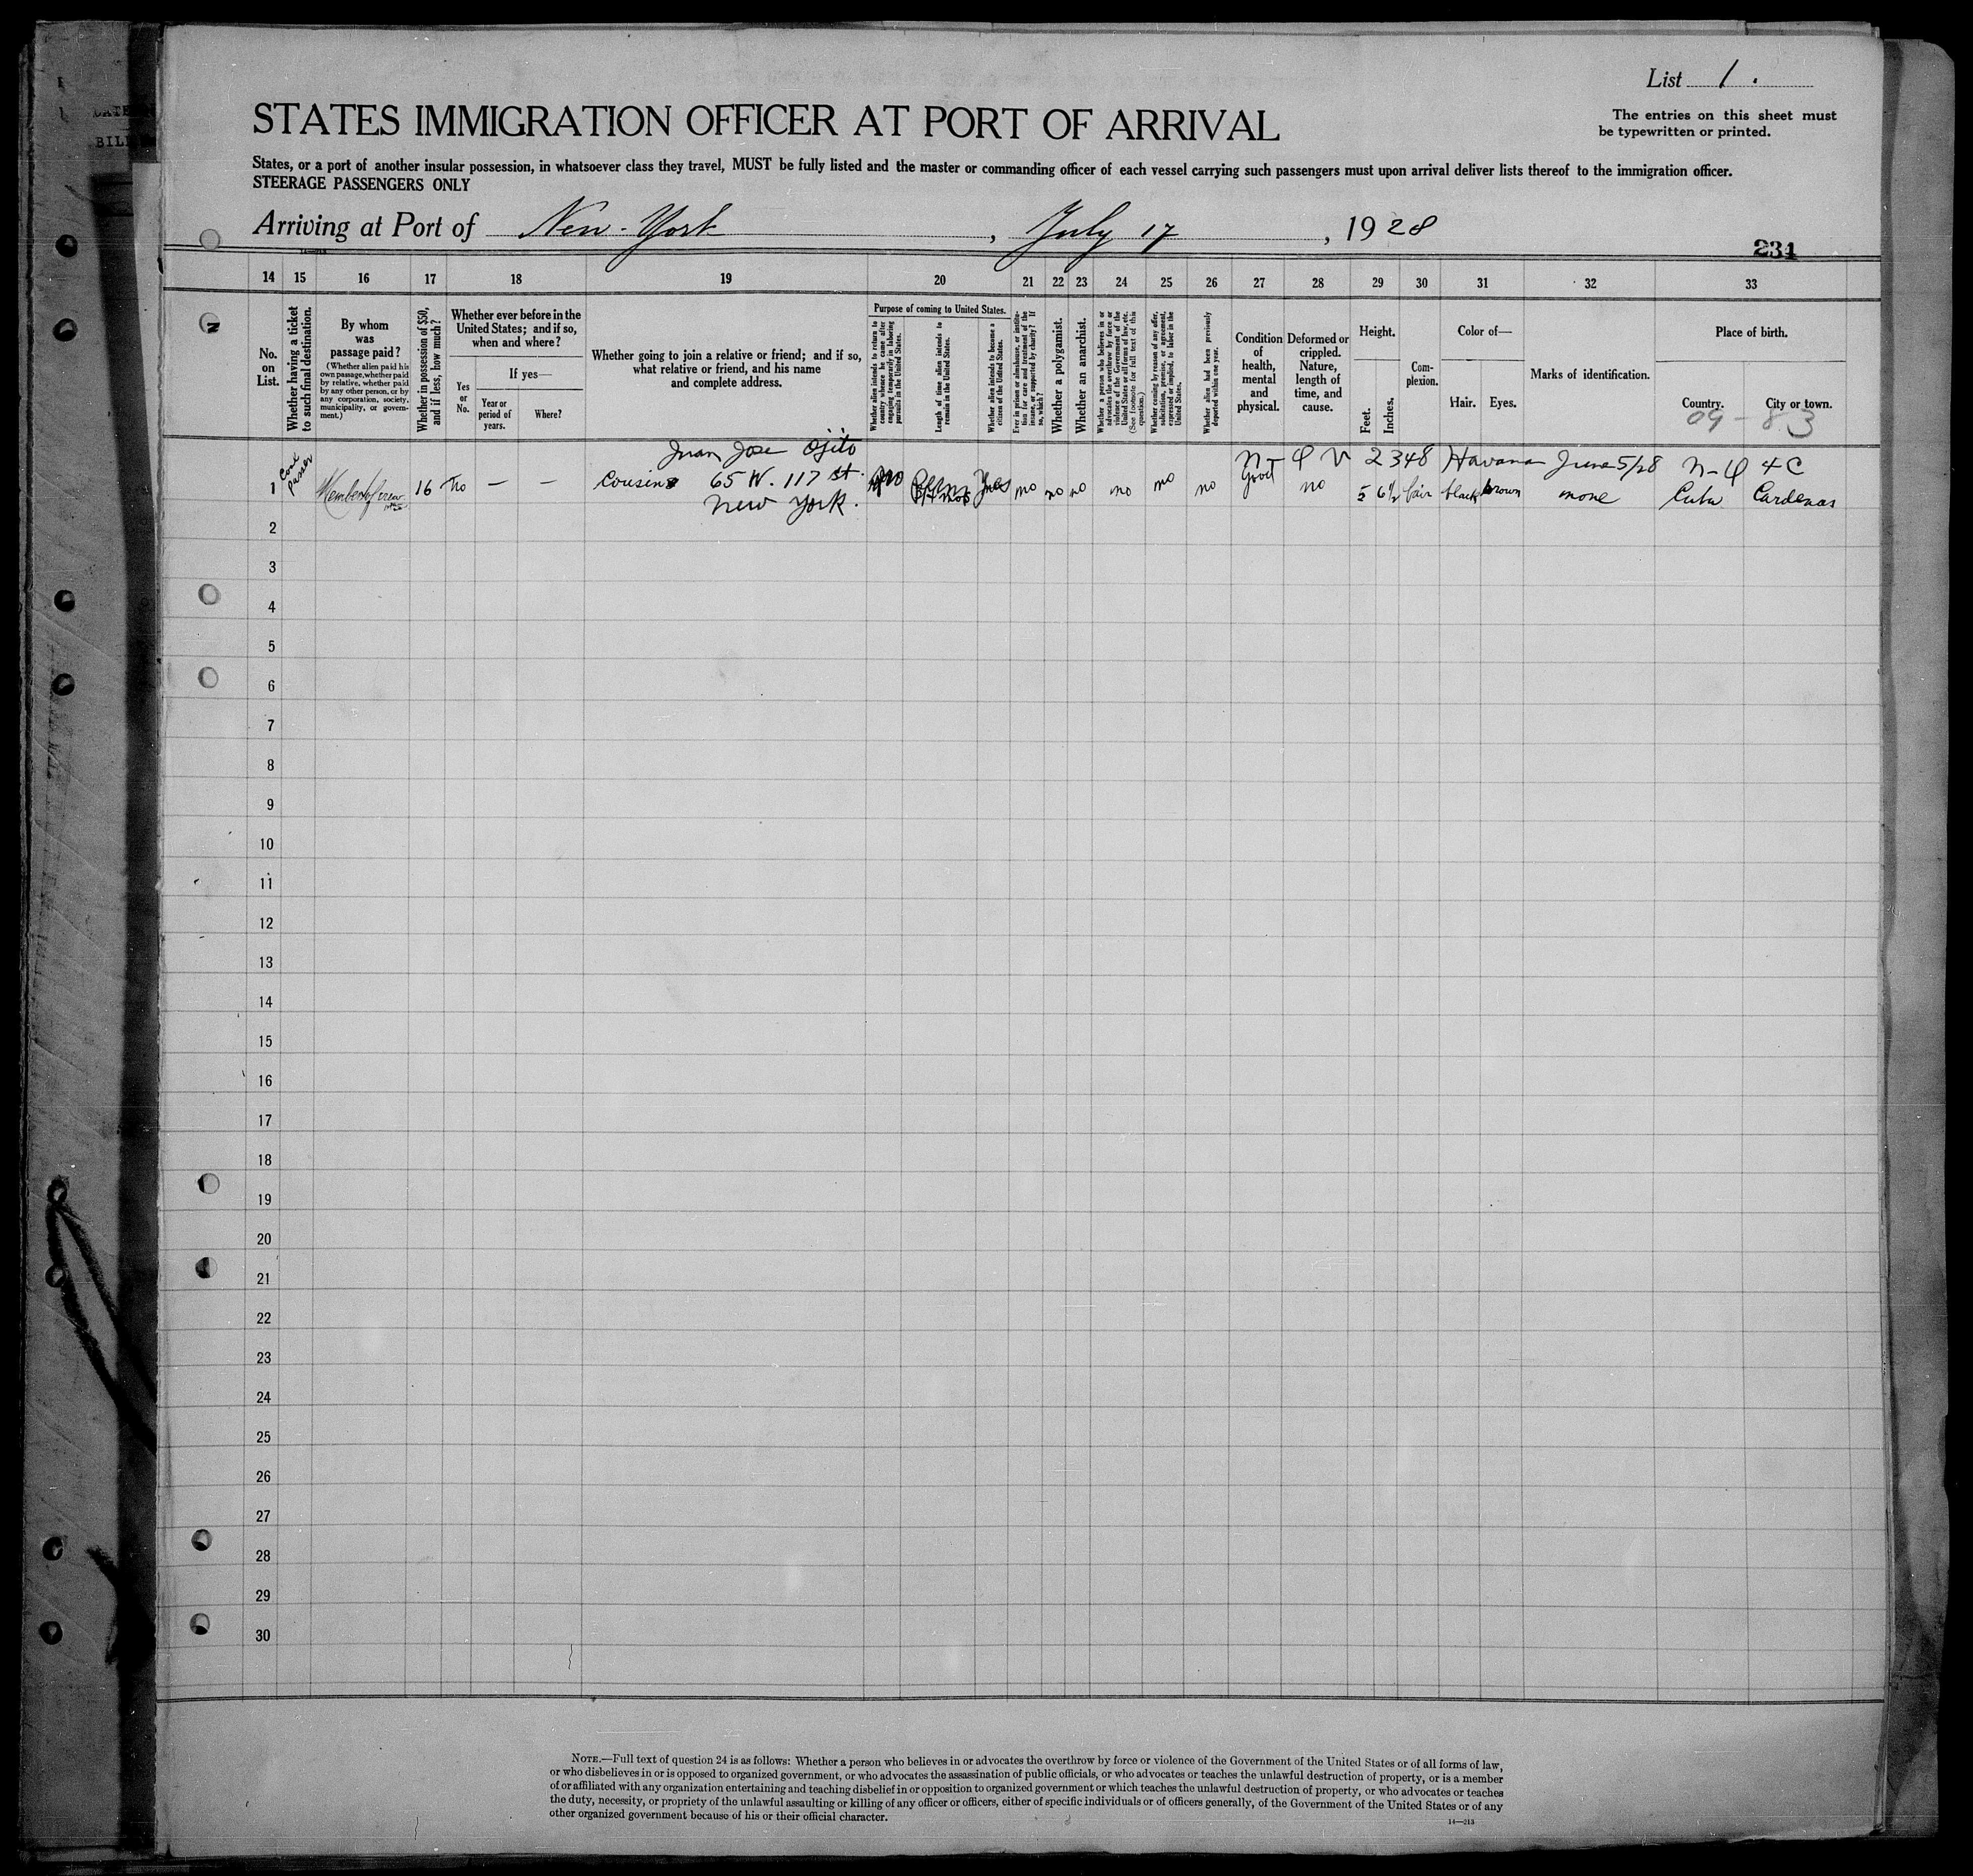 List 1.
STATES IMMIGRATION OFFICER AT PORT OF ARRIVAL
The entries on this sheet must
be typewritten or printed.
States, or a port of another insular possession, in whatsoever class they travel, MUST be fully listed and the master or commanding officer of each vessel carrying such passengers must upon arrival deliver lists thereof to the immigration officer.
STEERAGE PASSENGERS ONLY
Arriving at Port of New-York, July 17, 1928
234
14 15 16 17 18 19 20 21 22 23 24 25 26 27 28 29 30 31 32 33
No.
on
List.
Whether having a ticket
to such final destination.
By whom
was
passage paid?
(Whether alien paid his
own passage, whether paid
by relative, whether paid
by any other person, or by
any corporation, society,
municipality, or govern-
ment.)
Whether in possession of $50,
and if less, how much?
Whether ever before in the
United States; and if so,
when and where?
Yes
or
No.
If yes—
Year or
period of
years.
Where?
Whether going to join a relative or friend; and if so,
what relative or friend, and his name
and complete address.
Purpose of coming to United States.
Whether alien intends to return to
country whence he came after
engaging temporarily in laboring
pursuits in the United States.
Length of time alien intends to
remain in the United States.
Whether alien intends to become a
citizen of the United States.
Ever in prison or almshouse, or institu-
tion for care and treatment of the
insane, or supported by charity? If
so, which?
Whether a polygamist.
Whether an anarchist.
Whether a person who believes in or
advocates the overthrow by force or
violence of the Government of the
United States or all forms of law, etc.
(See footnote for full text of this
question.)
Whether coming by reason of any offer,
solicitation, promise, or agreement,
expressed or implied, to labor in the
United States.
Whether alien had been previously
deported within one year.
Condition
of
health,
mental
and
physical.
Deformed or
crippled.
Nature,
length of
time, and
cause.
Height.
Feet.
Inches.
Com-
plexion.
Color of—
Hair. Eyes.
Marks of identification.
Place of birth.
Country. City or town.
09-83
Juan Jose Ojito
N-QV 2348 Havana June 5/28 N-Q 4C
1 Coal passer Member of crew 16 no — — Cousin 65 W. 117 St. no Perm Yes no no no no no no Good no 5 6½ fair black brown none Cuba Cardenas
New York.
2
3
4
5
6
7
8
9
10
11
12
13
14
15
16
17
18
19
20
21
22
23
24
25
26
27
28
29
30
NOTE.—Full text of question 24 is as follows: Whether a person who believes in or advocates the overthrow by force or violence of the Government of the United States or of all forms of law,
or who disbelieves in or is opposed to organized government, or who advocates the assassination of public officials, or who advocates or teaches the unlawful destruction of property, or is a member
of or affiliated with any organization entertaining and teaching disbelief in or opposition to organized government or which teaches the unlawful destruction of property, or who advocates or teaches
the duty, necessity, or propriety of the unlawful assaulting or killing of any officer or officers, either of specific individuals or of officers generally, of the Government of the United States or of any
other organized government because of his or their official character.
14—213